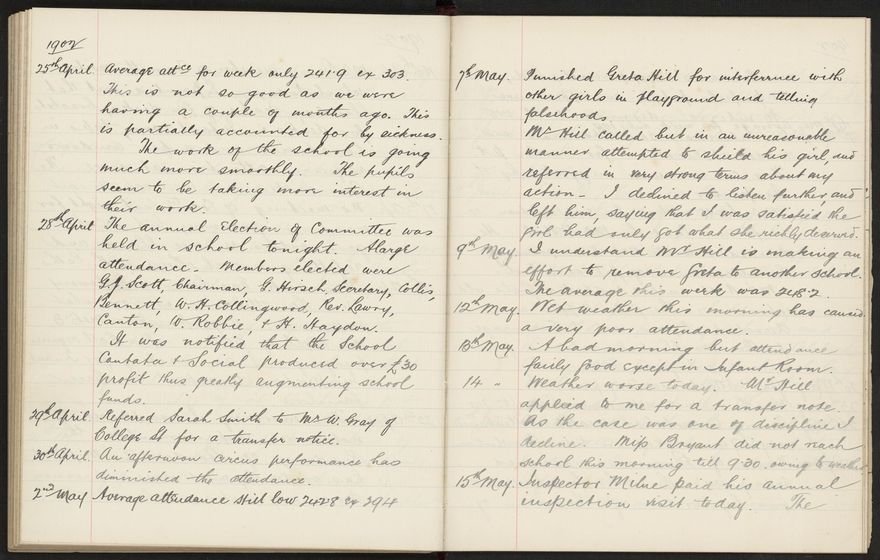 1902
25th April. Average attce for week only 241.9 ex 303.
This is not so good as we were
having a couple of months ago. This
is partially accounted for by sickness.
The work of the school is going
much more smoothly. The pupils
seem to be taking more interest in
their work.
28th April The annual Election of Committee was
held in school tonight. A large
attendance. Members elected were
G.J. Scott, Chairman, G. Hirsch, Secretary, Collis,
Bennett, W. H. Collingwood, Rev. Lawry,
Canton, W. Robbie, & H. Haydon.
It was notified that the School
Cantata & Social produced over £30
profit thus greatly augmenting school
funds.
29th April. Referred Sarah Smith to Mr W. Gray of
College St for a transfer notice.
30th April. An afternoon circus performance has
diminished the attendance.
2nd May Average attendance still low 242.8 ex 294
7th May. Punished Greta Hill for interference with
other girls in playground and telling
falsehoods.
Mr Hill called but in an unreasonable
manner attempted to shield his girl, and
referred in very strong terms about my
action. I declined to listen further, and
left him, saying that I was satisfied the
girl had only got what she richly deserved.
9th May. I understand Mr Hill is making an
effort to remove Greta to another school.
The average this week was 248.2.
12th May. Wet weather this morning has caused
a very poor attendance.
13th May. A bad morning but attendance
fairly good except in Infant Room.
14 " Weather worse today. Mr Hill
applied to me for a transfer note.
As the case was one of discipline I
decline. Miss Bryant did not reach
school this morning till 9.30. owing to weather
15th May. Inspector Milne paid his annual
inspection visit today. The